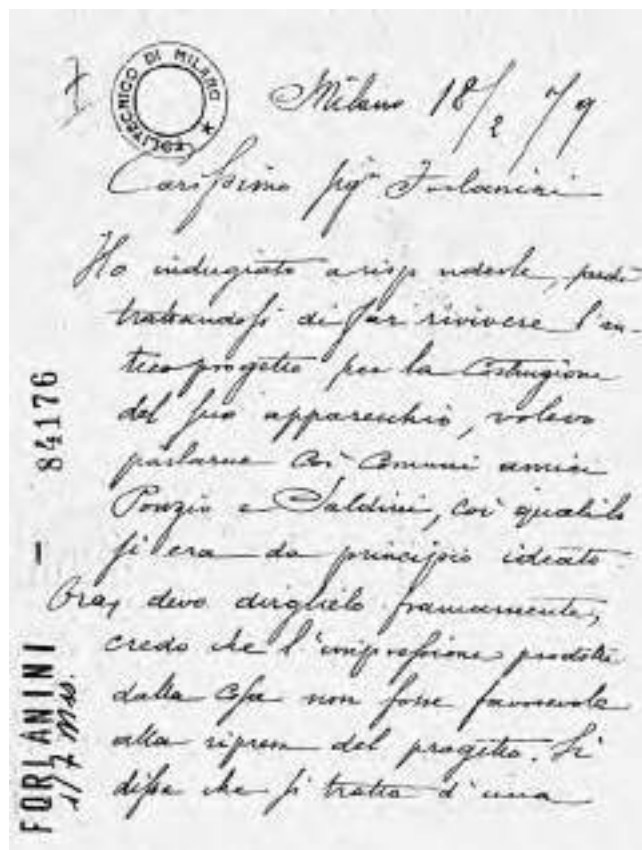 POLITECNICO DI MILANO
Milano 18/2 79
Carissimo Sigr Forlanini
Ho indugiato a risponderle, perché
trattandosi di far rivivere l'an-
tico progetto per la costruzione
del suo apparecchio, volevo
parlarne coi comuni amici
Ponzio e Saldini, coi quali lo
si era da principio ideato
Ora, devo dirglielo francamente,
credo che l'impressione prodotta
dalla cosa non fosse favorevole
alla ripresa del progetto. Si
disse che si tratta d'una
FORLANINI — 84176
1/7 Mss.